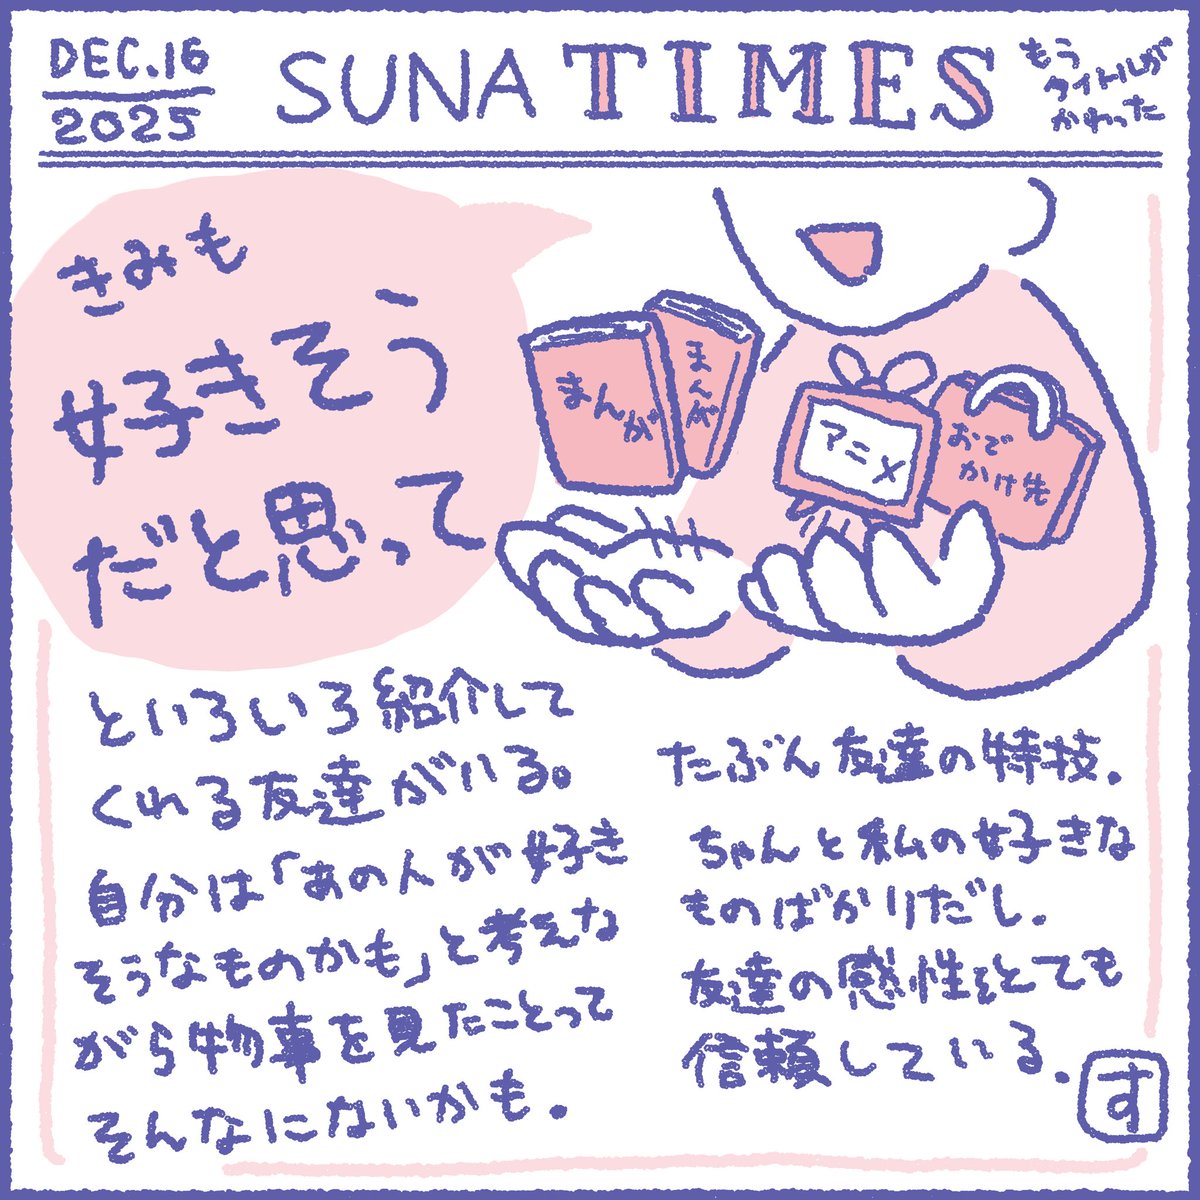 DEC.16
2025
SUNA TIMES
もう
タイトルが
かわった
きみも
好きそう
だと思って
まんが
まんが
アニメ
おで
かけ先
といろいろ紹介して
くれる友達がいる。
自分は「あの人が好き
そうなものかも」と考えな
がら物事を見たことって
そんなにないかも.
たぶん友達の特技.
ちゃんと私の好きな
ものばかりだし.
友達の感性をとても
信頼している.
す